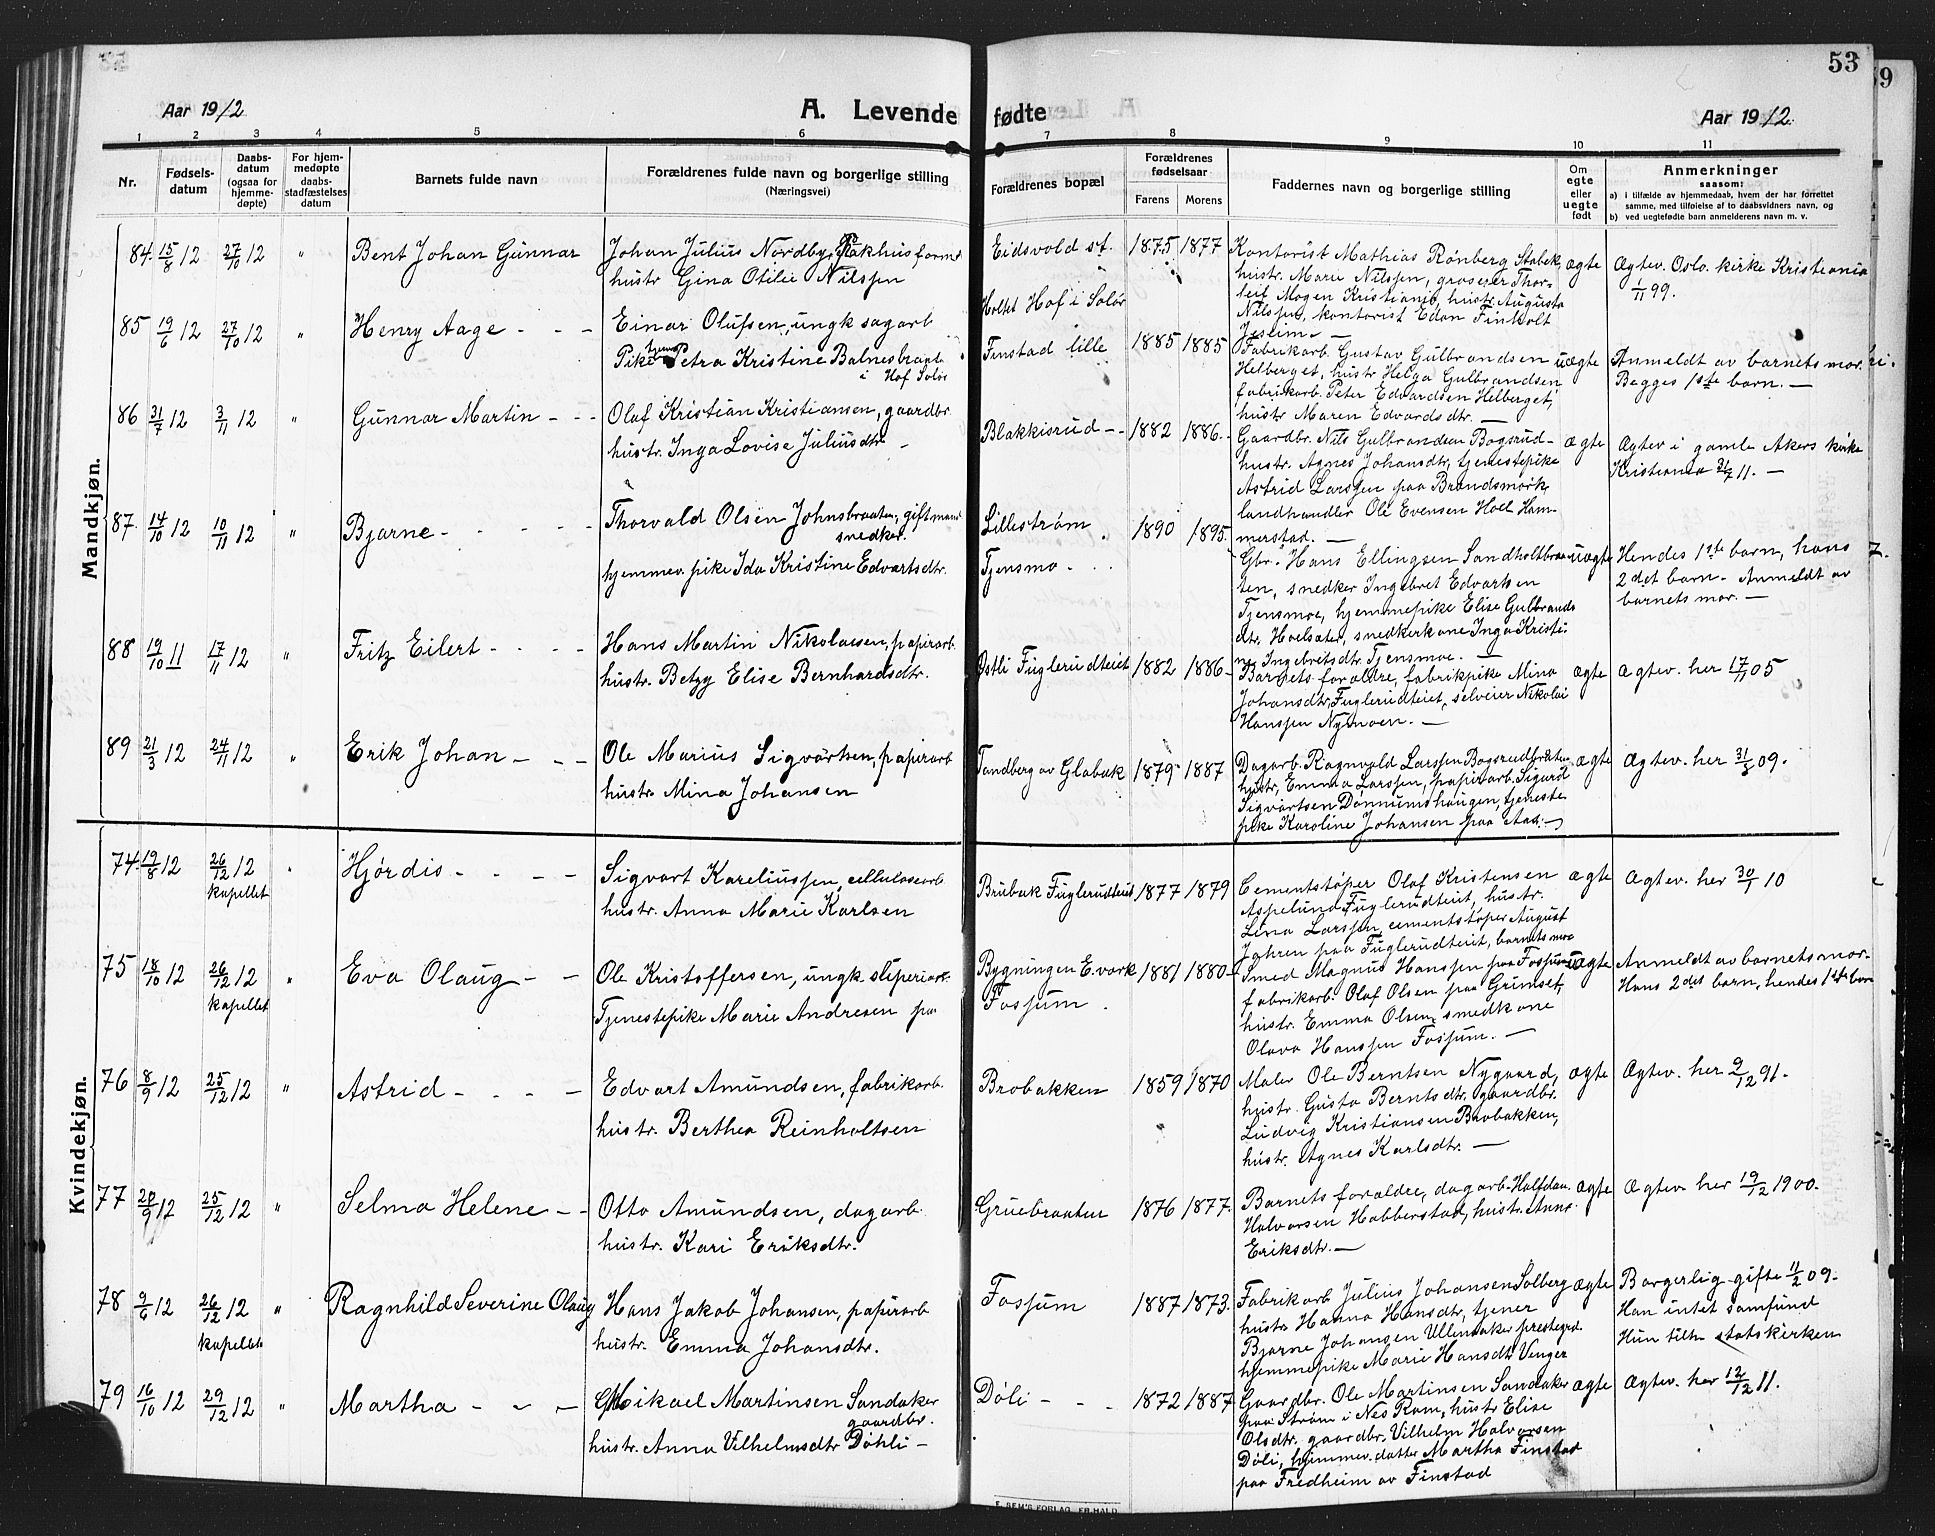 53
Aar 1912
A. Levende fødte
Aar 1912.
1 2 3 4 5 6 7 8 9 10 11
Nr.
Fødsels-
datum
Daabs-
datum
(ogsaa for
hjemme-
døpte)
For hjem-
medøpte
daabs-
stadfæstelses
datum
Barnets fulde navn
Forældrenes fulde navn og borgerlige stilling
(Næringsvei)
Forældrenes bopæl
Forældrenes
fødselsaar
Farens Morens
Faddernes navn og borgerlige stilling
Om
egte
eller
uegte
født
Anmerkninger
saasom:
a) i tilfælde av hjemmedaab, hvem der har forrettet
samme, med tilføielse af to daabsvidners navn, og
b) ved uegtefødte barn anmelderens navn m. v.
Mandkjøn.
84. 15/8 12 27/10 12 " Bent Johan Gunnar
Johan Julius Nordby, Pakhusform
hustr Gina Otilie Nilssen
Eidsvold st. 1875 1877
Kontorist Mathias Rønberg Stabek,
hustr. Marie Nilssen, grosserer Thor-
leif Mogen Kristiania, hustr. Augusta
Nilssen, kontorist Edon Finholt
Jessim —
ægte
Ægtev. Oslo kirke Kristiania
1/11 99.
85 19/6 12 27/10 12 " Henry Aage - - -
Einar Olufsen, ungk sagarb
Pike Petra Kristine Balnesbraate
i Hof Solør
Holtet Hof i Solør
Finstad lille 1885 1885
Fabrikarb. Gustav Gulbrandsen
Helberget, hustr Helga Gulbrandsen
fabrikarb. Peter Edvardsen Helberget,
hustr Maren Edvardsdtr. —
uægte
Anmeldt av barnets mor.
Begges 1ste barn. —
86 31/7 12 3/11 12 " Gunnar Martin - -
Olaf Kristian Kristiansen, gaardbr
hustr. Inga Lovise Juliusdtr. -
Blakkisrud - - 1882 1886.
Gaardbr. Nils Gulbrandsen Bogsrud-
hustr. Agnes Johansdtr, tjenestepike
Astrid Larssen paa Brandsmork
landhandler Ole Evensen Hoel Ham-
merstad. —
ægte
Ægtev i gamle Akers kirke
Kristiania 11. —
87. 14/10 12 10/11 12 " Bjarne - - - -
Thorvald Olsen Johnsbraaten, gift mand
snedker.
hjemmev. pike Ida Kristine Edvartsdtr.
Lillestrøm
Tjensmo - . . 1890 1895.
Gbr. Hans Ellingsen Sandholtbraa-
ten, snedker Ingebret Edvartsen
Tjensmoe, hjemmepike Elise Gulbrands
dtr. Hoelsæter, snedkerkone Inga Kristi-
ne Ingebretsdtr Tjensmoe. —
uægte
Hendes 1ste barn, hans
2det barn. Anmeldt av
barnets mor. —
88 19/10 11 17/11 12 " Fritz Eilert - - - -
Hans Martin Nikolaisen, papirarb.
hustr. Betzy Elise Bernhardsdtr.
Østli Fuglerudteiet 1882 1886 -
Barnets forældre, fabrikpike Mina
Johansdtr, Fuglerudteiet, selveier Nikolai
Hanssen Nysmoen. —
ægte
Ægtev. her 17/11 05
89 21/3 12 24/11 12 " Erik Johan - - -
Ole Marius Sigvartsen, papirarb
hustr. Mina Johansen
Tandberg av Globak 1879 1887
Dagarb. Ragnvald Larssen Bogsrudbraten
hustr. Emma Larssen, papirarb. Sigurd
Sigvartsen Dønnumshaugen, tjeneste
pike Karoline Johansen paa Aas. —
ægte
Ægtev. her 09.
Kvindekjøn.
74. 19/8 12 26/12 12 Hjørdis - - - -
kapellet
Sigvart Kareliussen, cellulosearb
hustr. Anna Marie Karlsen
Brubak Fuglerudteiet 1877 1879
Cementstøper Olaf Kristensen
Aspelund Fuglerudteiet, hustr.
Lina Larssen, cementstøper August
Jahren paa Fuglerudteiet, barnets moe
ægte
Ægtev. her 30/1 10
75 18/10 12 26/12 12 " Eva Olaug - -
kapellet
Ole Kristoffersen, ungk. sliperiarb
Tjenestepike Marie Andresen paa
Bygningen E. værk
Fossum . 1881 1880 -
Smed Magnus Hanssen paa Fossum
fabrikarb. Olaf Olsen paa Grimset,
hustr. Emma Olsen, smedkone
Olava Hanssen Fossum. —
uægte
Anmeldt av barnets mor-
Hans 2det barn, hendes 1ste barn
76 8/9 12 25/12 12 " Astrid - - - -
Edvart Amundsen, fabrikarb.
hustr. Berthea Reinholtsen
Brobakken 1859 1870
Maler Ole Berntsen Nygaard,
hustr. Gusta Berntsdtr. gaardbr.
Ludvig Kristiansen Brobakken,
hustr. Agnes Karlsdtr. —
ægte
Ægtev. her 9/12 91.
77 20/9 12 25/12 12 " Selma Helene - -
Otto Amundsen, dagarb
hustr. Kari Eriksdtr.
Gruebraaten 1876 1877.
Barnets forældre, dagarb. Halfdan
Halvorsen Habberstad, hustr. Anne
Eriksdtr. —
ægte
Ægtev. her 19/12 1900.
78 9/6 12 26/12 12 " Ragnhild Severine Olaug
kapellet
Hans Jakob Johansen, papirarb
hustr. Emma Johansdtr.
Fossum 1887 1873.
Fabrikarb Julius Johansen Solberg
hustr. Hanna Hansdtr, tjener
Bjarne Johansen Ullensaker prestegrd.
hjemmepike Marie Hansdtr Venger
ægte
Borgerlig gifte 11/2 09.
Han intet samfund
Hun tilh. statskirken
79 16/10 12 29/12 12 " Martha - - -
Mikael Martinsen Sandaker
gaardbr.
hustr. Anna Vilhelmsdtr Døhli -
Døli - - - 1872 1887
Gaardbr. Ole Martinsen Sandaker
paa Strøm i Nes Rom, hustr Elise
Olsdtr. gaardbr. Vilhelm Halvorsen
Døli, hjemmev. datter Martha Finstad
paa Fredheim av Finstad
ægte
Ægtev. her 12/12 11.